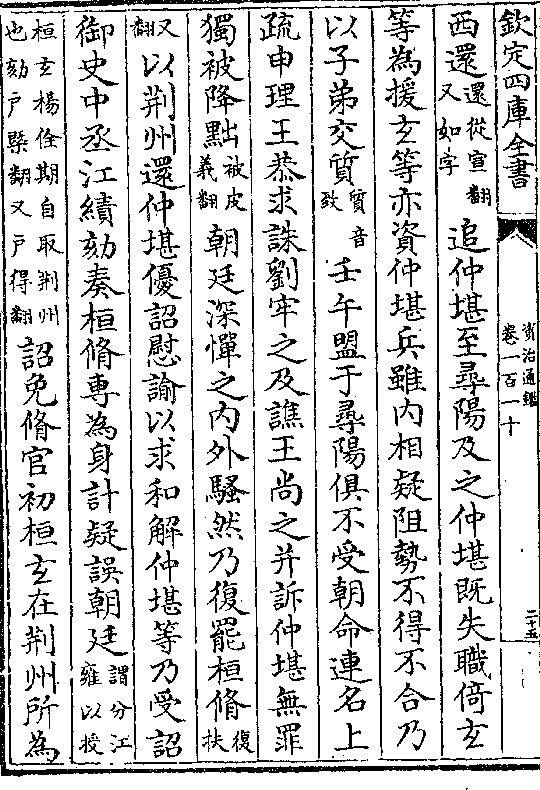 欽定四庫全書
資治通鑑
卷一百一十
二十五
西還還從宣翻又如字追仲堪至尋陽及之仲堪既失職倚玄
等為援玄等亦資仲堪兵雖内相疑阻勢不得不合乃
以子弟交質質音致壬午盟于尋陽俱不受朝命連名上
疏申理王恭求誅劉牢之及譙王尚之并訴仲堪無罪
獨被降黜被皮義翻朝廷深憚之内外騷然乃復罷桓脩復扶
又翻以荆州還仲堪優詔慰諭以求和解仲堪等乃受詔
御史中丞江績劾奏桓脩專為身計疑誤朝廷謂分江雍以授
桓玄楊佺期自取荆州也劾戸槩翻又戸得翻詔免脩官初桓玄在荆州所為